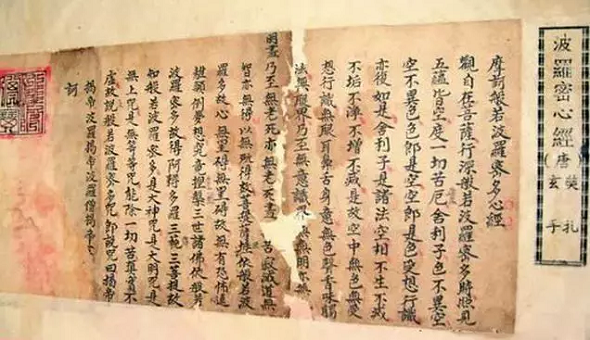 波羅密心經
(唐玄奘手札)
摩訶般若波羅蜜多心經
觀自在菩薩行深般若波羅蜜多時照見
五蘊皆空度一切苦厄舍利子色不異空
空不異色色即是空空即是色受想行識
亦復如是舍利子是諸法空相不生不滅
不垢不淨不增不減是故空中無色無受
想行識無眼耳鼻舌身意無色聲香味觸
法無眼界乃至無意識界無無明亦無
明盡乃至無老死亦無老死盡苦滅道無
智亦無得以無所得故菩提薩埵依般若波
羅多故心無罣礙無罣礙故無有恐怖遠
離顛倒夢想究竟涅槃三世諸佛依般若
波羅蜜多故得阿耨多羅三藐三菩提故
知般若波羅蜜多是大神咒是大明咒是
無上咒是無等等咒能除一切苦真實不
虛故說般若波羅蜜多咒即說咒曰揭帝
揭帝波羅揭帝波羅僧揭帝
訶